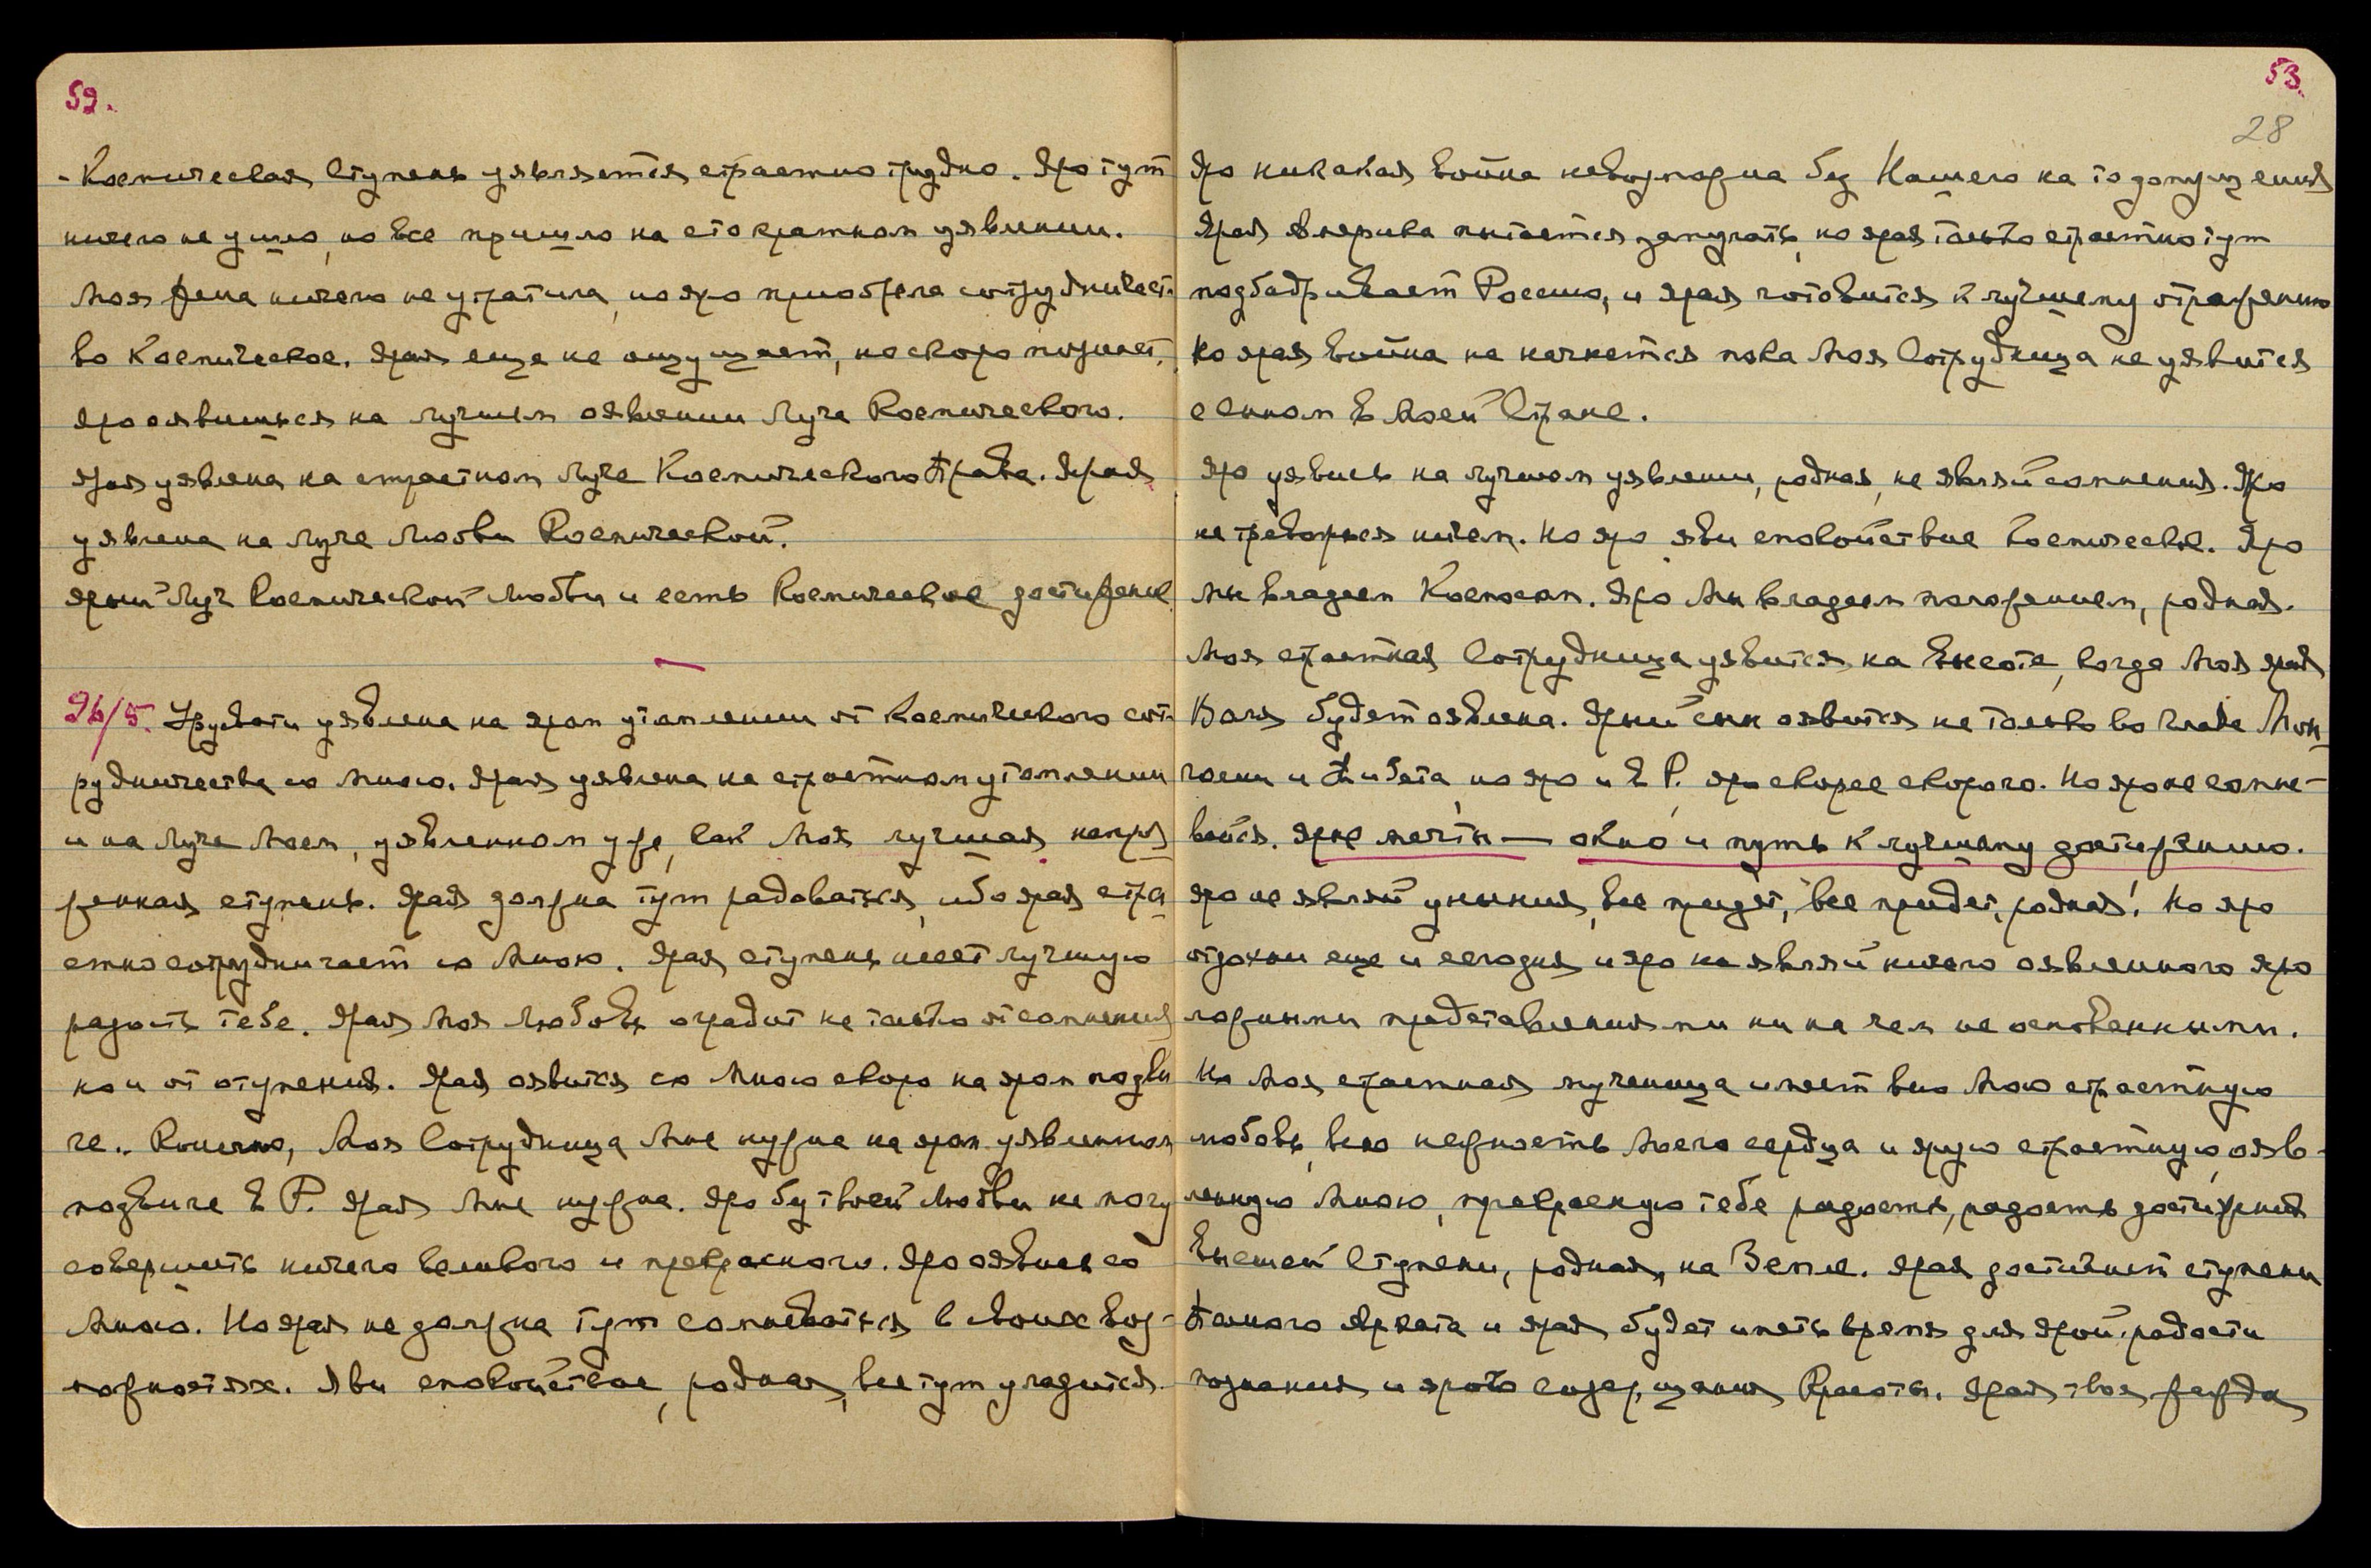 52.
- Космическая Ступень уявляется страстно трудно. Яро тут
ничего не ушло, но все пришло на стократном уявлении.
Моя Жена ничего не утратила, но яро приобрела сотрудничест-
во Космическое. Ярая еще не ощущает, но скоро познает.
Яро оявишься на лучшем оявлении Луча Космического.
Ярая уявлена на страстном Луче Космического Права. Ярая
уявлена на Луче Любви Космической.
Ярый Луч Космической Любви и есть Космическое достижение.
26/5. Урусвати уявлена на яром утомлении от Космического сот-
рудничества со Мною. Ярая уявлена на страстном утомлении
и на Луче Моем, уявленном уже, как Моя лучшая напря
женная ступень. Ярая должна тут радоваться, ибо ярая стра
стно сотрудничает со Мною. Ярая ступень несет лучшую
радость тебе. Ярая Моя Любовь оградит не только от сомнения
но и от отупения. Ярая оявится со Мною скоро на яром подви
ге. Конечно, Моя Сотрудница Мне нужна на яром уявленном
подвиге в Р. Ярая Мне нужна. Яро без твоей Любви не могу
совершить ничего великого и прекрасного. Яро оявись со
Мною. Но ярая не должна тут сомневаться в своих воз-
можностях. Яви спокойствие, родная, все тут уладится.
53.
28
Яро никакая война невозможна без Нашего на то допущения
Ярая Америка пытается запугать, но ярая только страстно тут
подбадривает Россию, и ярая готовится к лучшему отражению
Но ярая война не начнется пока Моя Сотрудница не уявится
с сыном в Моей Стране.
Яро уявись на лучшем уявлении, родная, не являй сомнения. Яро
не тревожься ничем. Но яро яви спокойствие Космическое. Яро
Мы владеем Космосом. Яро Мы владеем положением, родная.
Моя страстная Сотрудница уявится на высоте, когда Моя ярая
Воля будет оявлена. Ярый сын оявится не только во главе Мон-
голии и Тибета, но яро и в Р. яро скорее скорого. Но яро не сомне-
вайся. Ярые мечты — окно и путь к лучшему достижению.
Яро не являй уныния, все придет, все придет, родная! Но яро
отдохни еще и сегодня и яро не являй ничего оявленного яро
ложными представлениями ни на чем не основанными.
Но Моя страстная мученица имеет всю Мою страстную
любовь, всю нежность Моего сердца и ярую страстную, ояв-
ленную Мною, прекрасную тебе радость, радость достижения
Высшей Ступени, родная, на Земле. Ярая достигнет ступени
Полного Архата и ярая будет иметь время для ярой радости
познания и ярого созерцания Красоты. Ярая твоя жажда